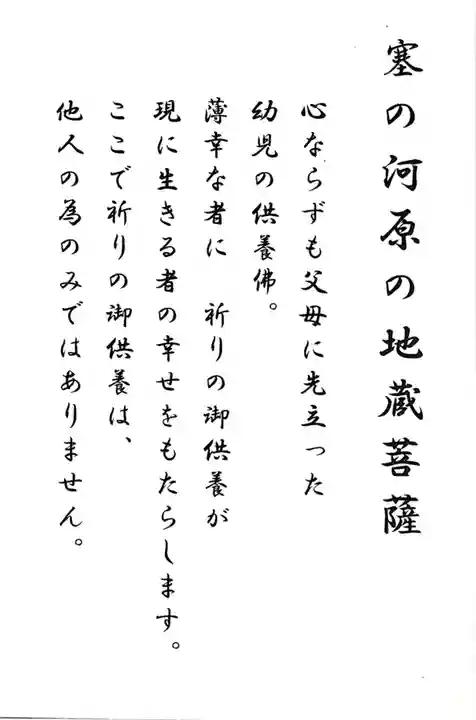 塞の河原の地蔵菩薩
心ならずも父母に先立った
幼児の供養佛。
薄幸な者に　祈りの御供養が
現に生きる者の幸せをもたらします。
ここで祈りの御供養は、
他人の為のみではありません。